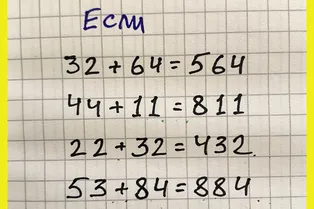 Если
32 + 64 = 564
44 + 11 = 811
22 + 32 = 432
53 + 84 = 884